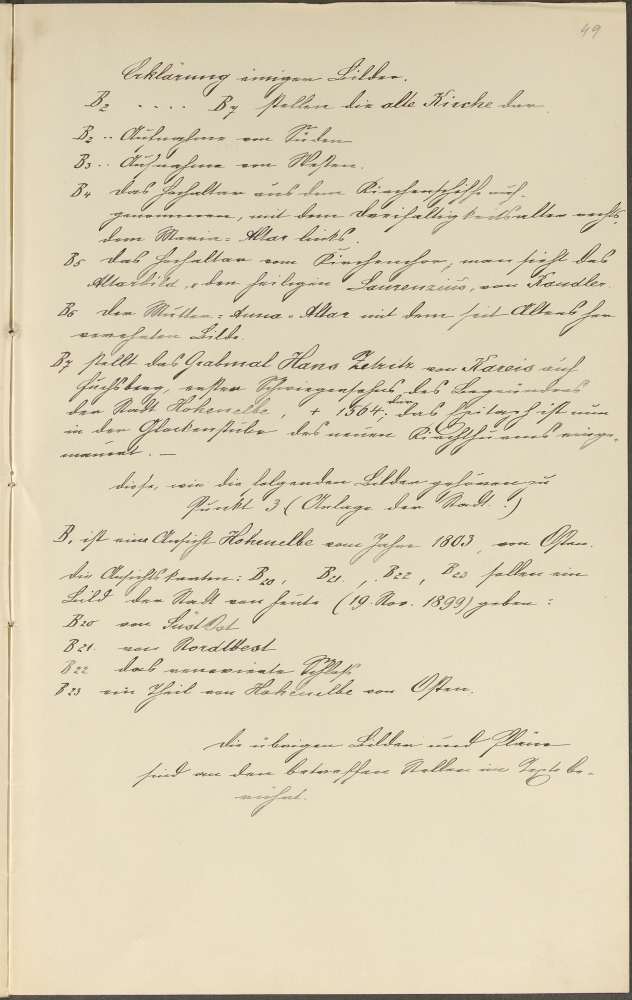 49
Erklärung einiger Bilder.
B2 . . . . B7 stellen die alte Kirche dar
B2 .. Aufnahme von Süden
B3 .. Aufnahme von Westen.
B4 das Hochaltar aus dem Kirchenschiffe auf-
genommen, mit dem Dreifaltigkeitsaltar rechts,
dem Maria-Altar links.
B5 das Hochaltar vom Kirchenchor, man sieht das
Altarbild, den heiligen Laurenzius, von Kandler.
B6 den Mutter-Anna-Altar mit dem seit Altersher
verehrten Bilde.
B7 stellt das Grabmal Hans Zetritz von Kareis auf
Fuchsberg, ersten Schwiegersohns des Begründers
der Stadt Hohenelbe, + 1564, dar; das Epitaph ist nun
in der Glockenstube des neuen Kirchthurms einge-
mauert. —
Diese, wie die folgenden Bilder gehören zu
Punkt 3 (Anlage der Stadt.)
B1 ist eine Ansicht Hohenelbe vom Jahre 1803, von Osten.
Die Ansichtskarten: B20, B21, B22, B23 sollen ein
Bild der Stadt von heute (19. Nov. 1899) geben:
B20 von Südost
B21 von Nordwest
B22 das renovierte Schloß
B23 ein Theil von Hohenelbe von Osten.
Die übrigen Bilder und Pläne
sind an den betreffen Stellen im Texte be-
rührt.